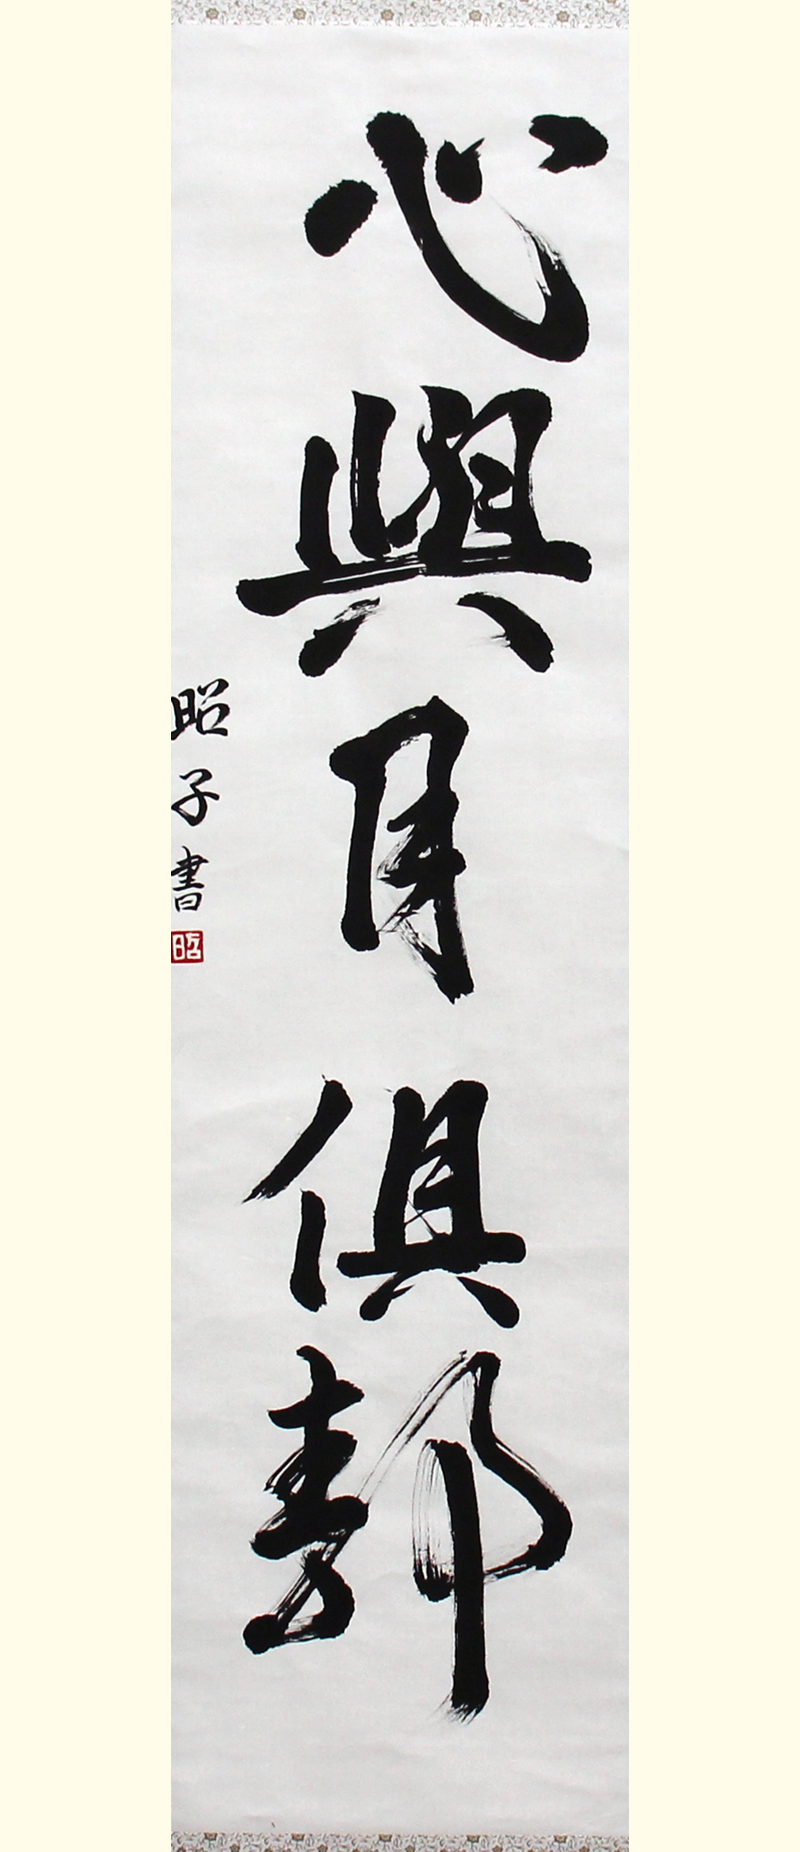 心與月俱静
昭子書
昭